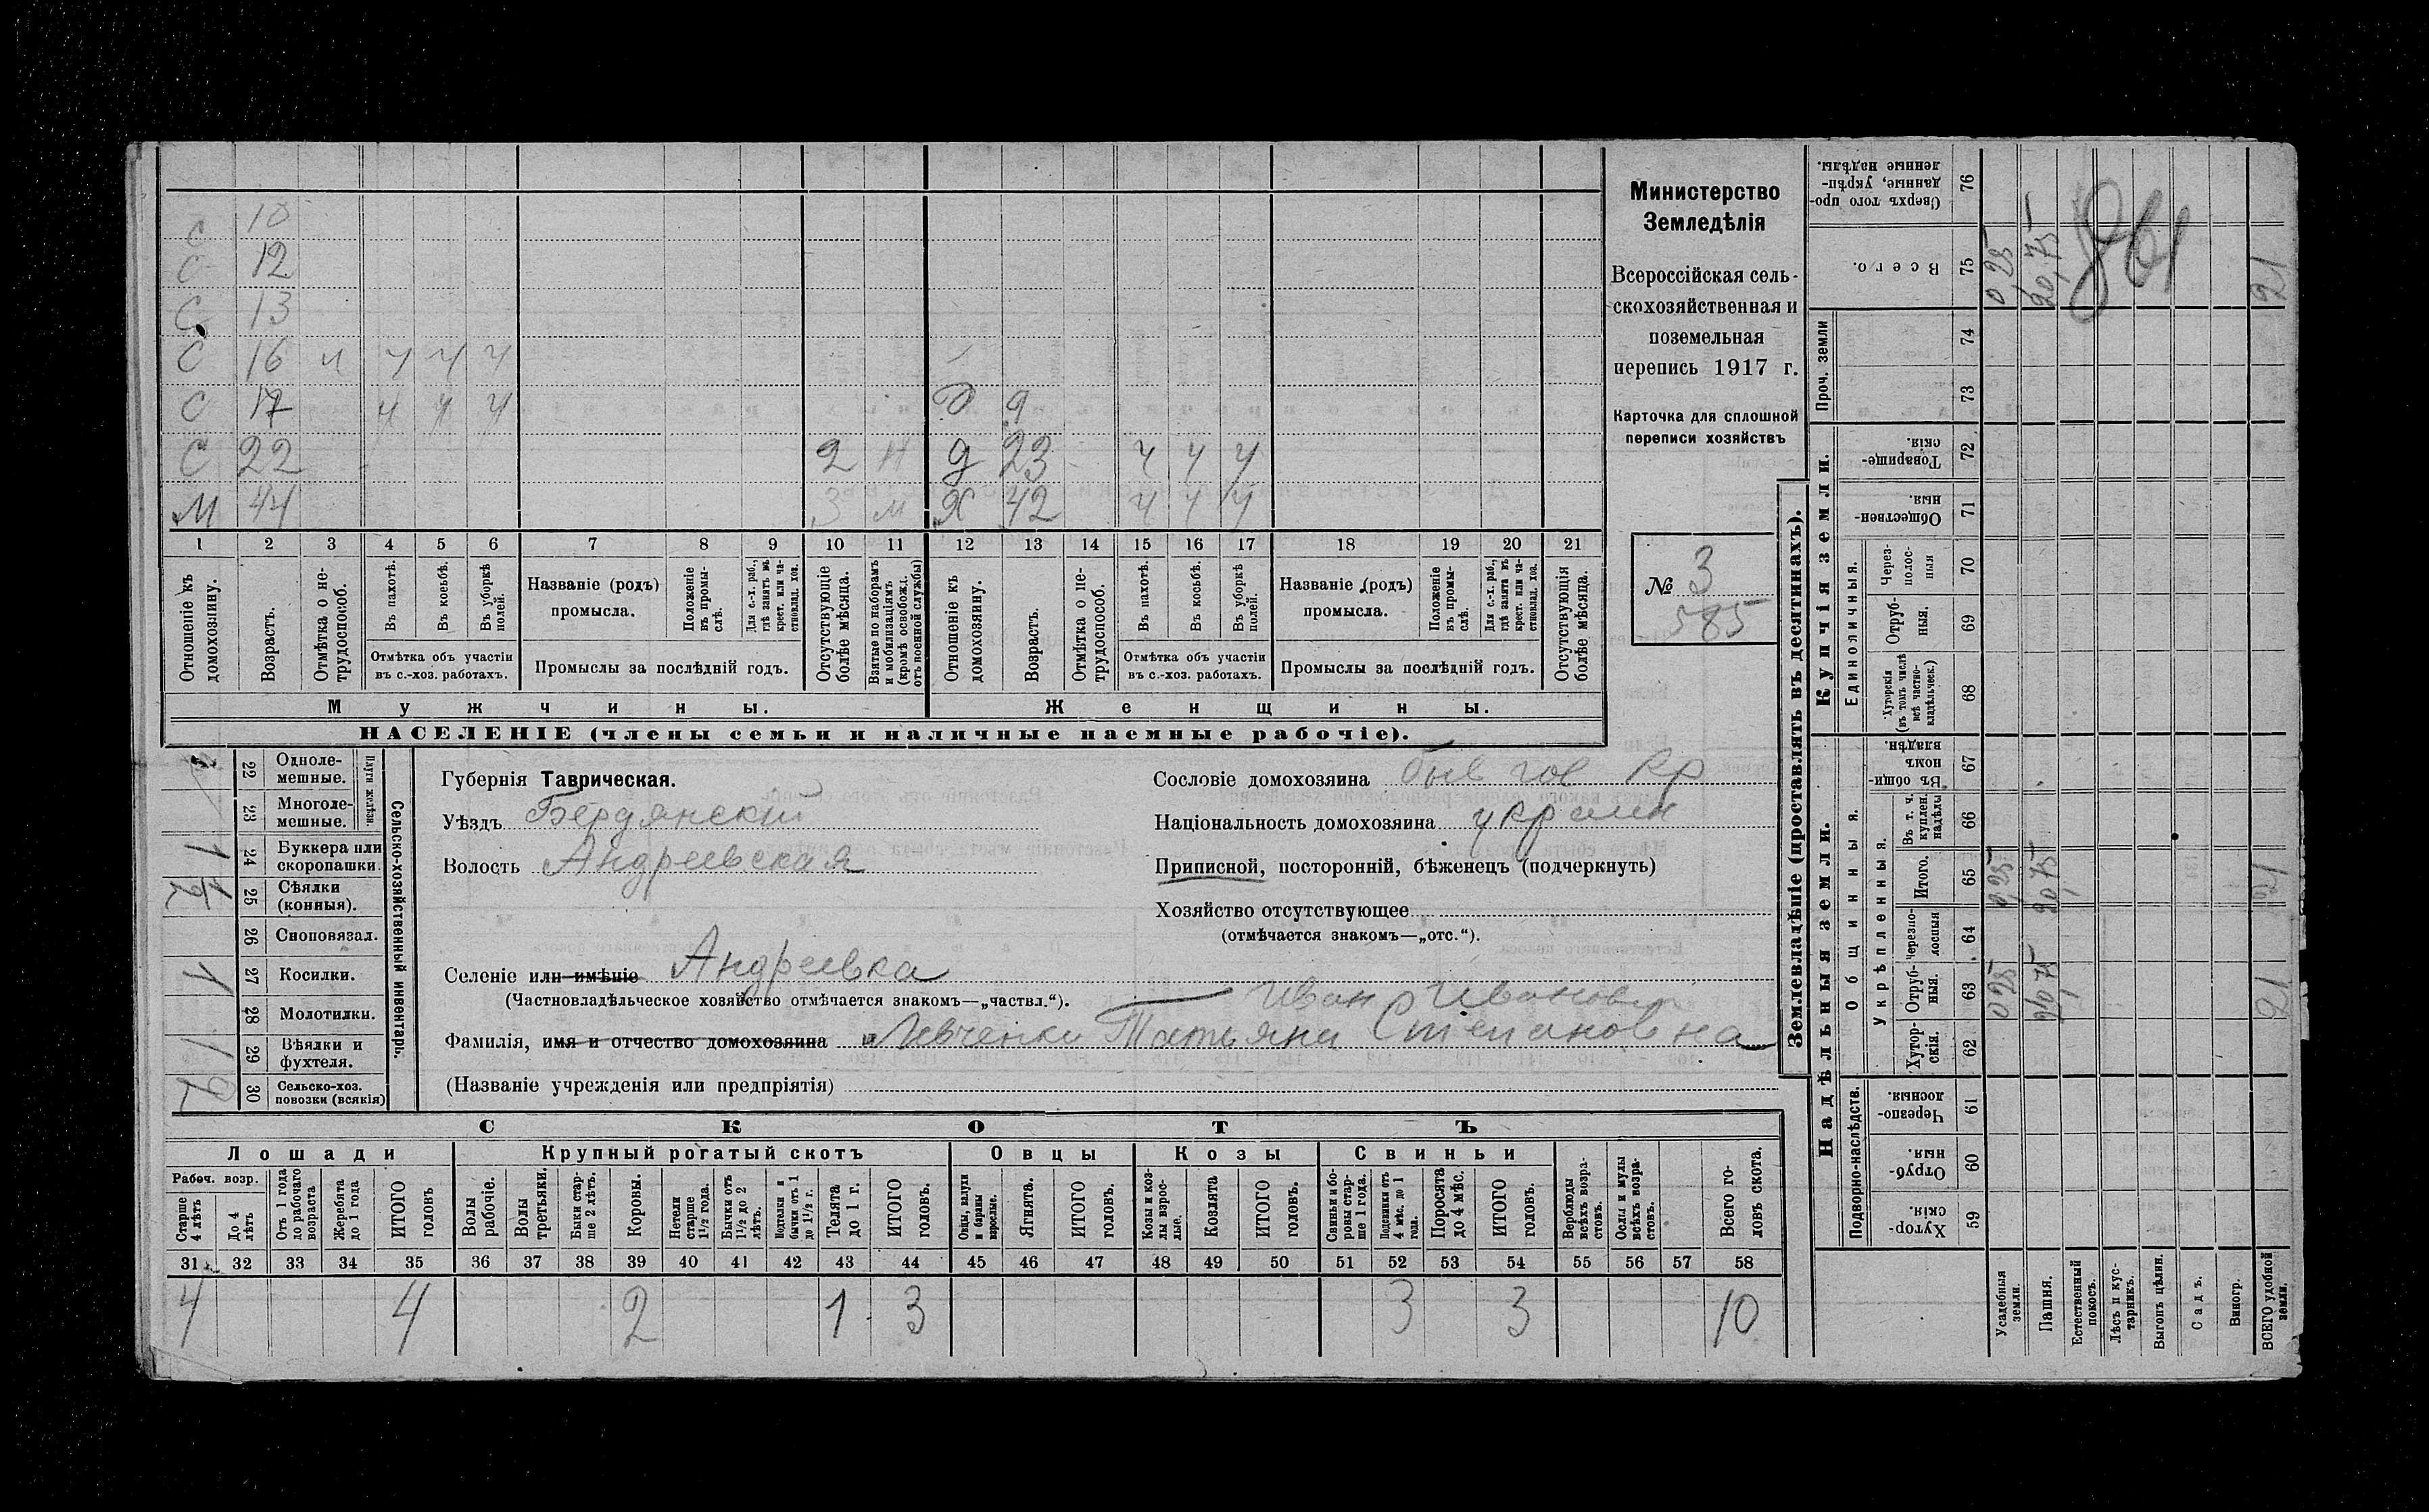 С 10
С 12
С 13
С 16 ч ч ч ч
С 17 ч ч ч Д 9
С 22 2 Д 23 ч ч ч
М 44 3 м Х 42 ч ч ч
1 2 3 4 5 6 7 8 9 10 11 12 13 14 15 16 17 18 19 20 21
Отношеніе къ домохозяину.
Возрастъ.
Отмѣтка о не-трудоспособ.
Въ пахотѣ.
Въ косьбѣ.
Въ уборкѣ полей.
Отмѣтка объ участіи
въ с.-хоз. работахъ.
Названіе (родъ)
промысла.
Положеніе въ промы-слѣ.
Для с.-х. раб., гдѣ занятъ въ крест. или ча-стновлад. хоз.
Промыслы за послѣдній годъ.
Отсутствующіе болѣе мѣсяца.
Взятые по наборамъ и мобилизаціямъ (кромѣ освобожд. отъ военной службы)
Отношеніе къ домохозяину.
Возрастъ.
Отмѣтка о не-трудоспособ.
Въ пахотѣ.
Въ косьбѣ.
Въ уборкѣ полей.
Отмѣтка объ участіи
въ с.-хоз. работахъ.
Названіе (родъ)
промысла.
Положеніе въ промы-слѣ.
Для с.-х. раб., гдѣ занята въ крест. или ча-стновлад. хоз.
Промыслы за послѣдній годъ.
Отсутствующія болѣе мѣсяца.
Мужчины.
Женщины.
НАСЕЛЕНІЕ (члены семьи и наличные наемные рабочіе).
Министерство
Земледѣлія
Всероссійская сель-
скохозяйственная и
поземельная
перепись 1917 г.
Карточка для сплошной
переписи хозяйствъ
№ 3
585
Сельско-хозяйственный инвентарь.
Плуги желѣзн.
22 Одноле-мешные.
23 Многоле-мешные.
1 24 Буккера или скоропашки.
1/2 25 Сѣялки (конныя).
26 Сноповязал.
1 27 Косилки.
28 Молотилки.
1 29 Вѣялки и фухтеля.
2 30 Сельско-хоз. повозки (всякія)
Губернія Таврическая.
Уѣздъ Бердянскій
Волость Андреевская
Сословіе домохозяина быв гос кр
Національность домохозяина украин
Приписной, посторонній, бѣженецъ (подчеркнуть)
Хозяйство отсутствующее
(отмѣчается знакомъ—„отс.“).
Селеніе или имѣніе Андреевка
(Частновладѣльческое хозяйство отмѣчается знакомъ—„частвл.“).
Иван Иванович
Фамилія, имя и отчество домохозяина Левченки Татьяна Степановна
(Названіе учрежденія или предпріятія)
СКОТЪ
Лошади Крупный рогатый скотъ Овцы Козы Свиньи
Рабоч. возр.
Старше 4 лѣтъ
До 4 лѣтъ
Отъ 1 года до рабочаго возраста
Жеребята до 1 года
ИТОГО головъ
Волы рабочіе.
Волы третьяки.
Быки стар-ше 2 лѣтъ.
Коровы.
Нетели старше 1½ года.
Бычки отъ 1½ до 2 лѣтъ.
Подтелки и бычки отъ 1 до 1½ г.
Телята до 1 г.
ИТОГО головъ.
Овцы, валухи и бараны взрослые.
Ягнята.
ИТОГО головъ.
Козы и коз-лы взрос-лые.
Козлята
ИТОГО головъ.
Свиньи и бо-ровы стар-ше 1 года.
Подсвинки отъ 4 мѣс. до 1 года.
Поросята до 4 мѣс.
ИТОГО головъ.
Верблюды всѣхъ возра-стовъ.
Ослы и мулы всѣхъ возра-стовъ.
Всего го-ловъ скота.
31 32 33 34 35 36 37 38 39 40 41 42 43 44 45 46 47 48 49 50 51 52 53 54 55 56 57 58
4 4 2 1 3 3 3 10
Землевладѣніе (проставлять въ десятинахъ).
Купчія земли.
Надѣльныя земли.
Проч. земли
Единоличныя.
Общинныя.
Укрѣпленныя.
Подворно-наслѣдств.
Сверхъ того про-данные, укрѣп-ленные надѣлы. 76
Всего. 75 0,25 20,75 21
861
74
73
Товарище-скія. 72
Обществен-ныя. 71
Через-полос-ныя 70
Отруб-ныя. 69
Хуторскія (въ томъ числѣ всѣ частно-владѣльческ.) 68
Въ общин-номъ владѣн. 67
Въ т. ч. куплен. надѣлы 66
Итого. 65 0,25 20,75 21
Черезпо-лосныя 64
Отруб-ныя. 63 0,25 20,75
Хутор-скія. 62
Черезпо-лосныя. 61
Отруб-ныя. 60
Хутор-скія. 59
Усадебныя земли.
Пашня.
Естественный покосъ.
Лѣсъ и кус-тарникъ.
Выгонъ цѣлин.
Садъ.
Виногр.
ВСЕГО удобной земли.